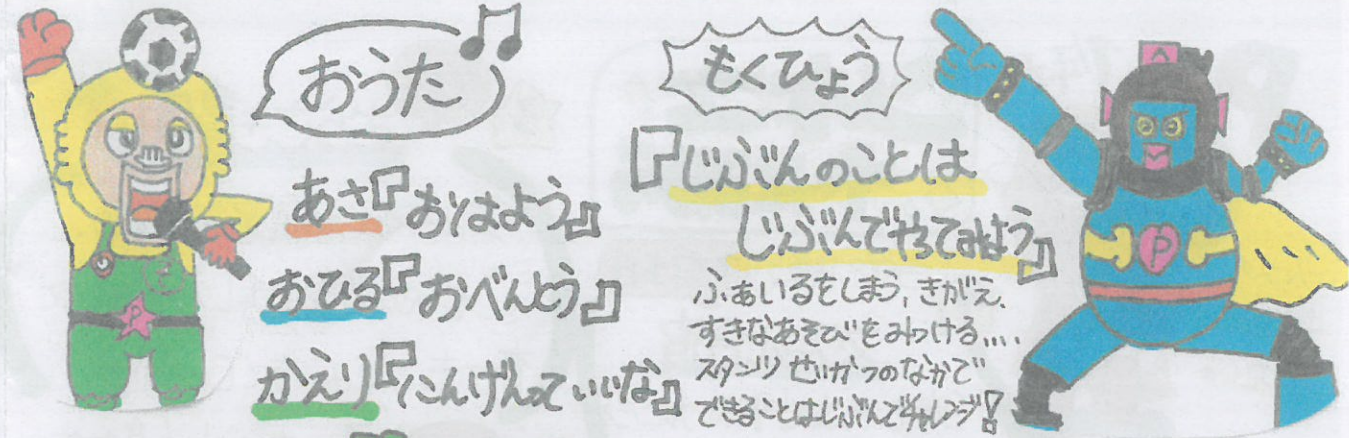 おうた
あさ『おはよう』
おひる『おべんとう』
かえり『にんげんっていいな』
P
もくひょう
『じぶんのことは
じぶんでやってみよう』
ふぁいるをしまう、きがえ、
すきなあそびをみつける....
スタンツ せいかつのなかで
できることはじぶんでチャレンジ!
P